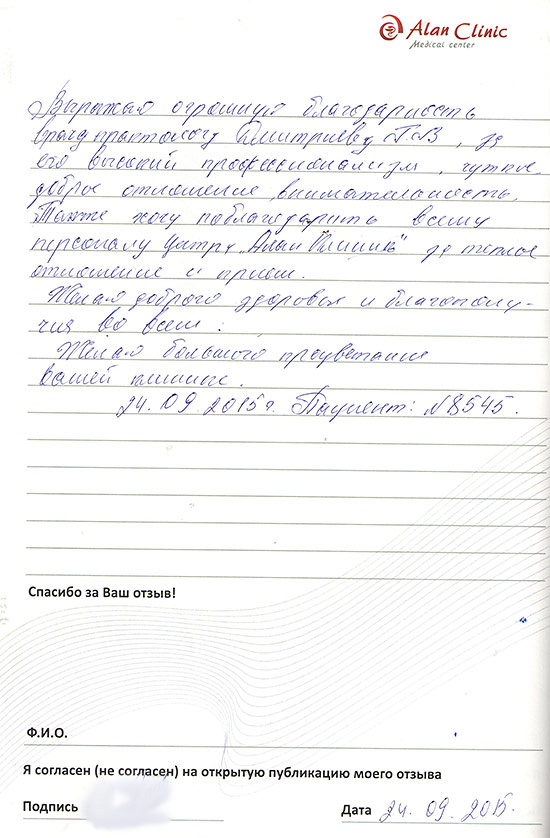 Alan Clinic
Medical center
Выражаю огромную благодарность
врачу проктологу Дмитриеву П.В, за
его высокий профессионализм, чуткое,
доброе отношение, внимательность.
Также хочу поблагодарить всему
персоналу Центра „Алан Клиник" за теплое
отношение и прием.
Желаю доброго здоровья и благополу-
чия во всем.
Желаю большого процветания
вашей клинике.
24.09.2015г. Пациент: №8545.
Спасибо за Ваш отзыв!
Ф.И.О.
Я согласен (не согласен) на открытую публикацию моего отзыва
Подпись
Дата 24.09.2015.